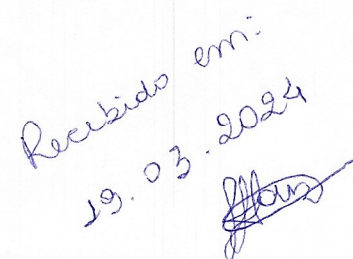 Recebido em:
19.03.2024